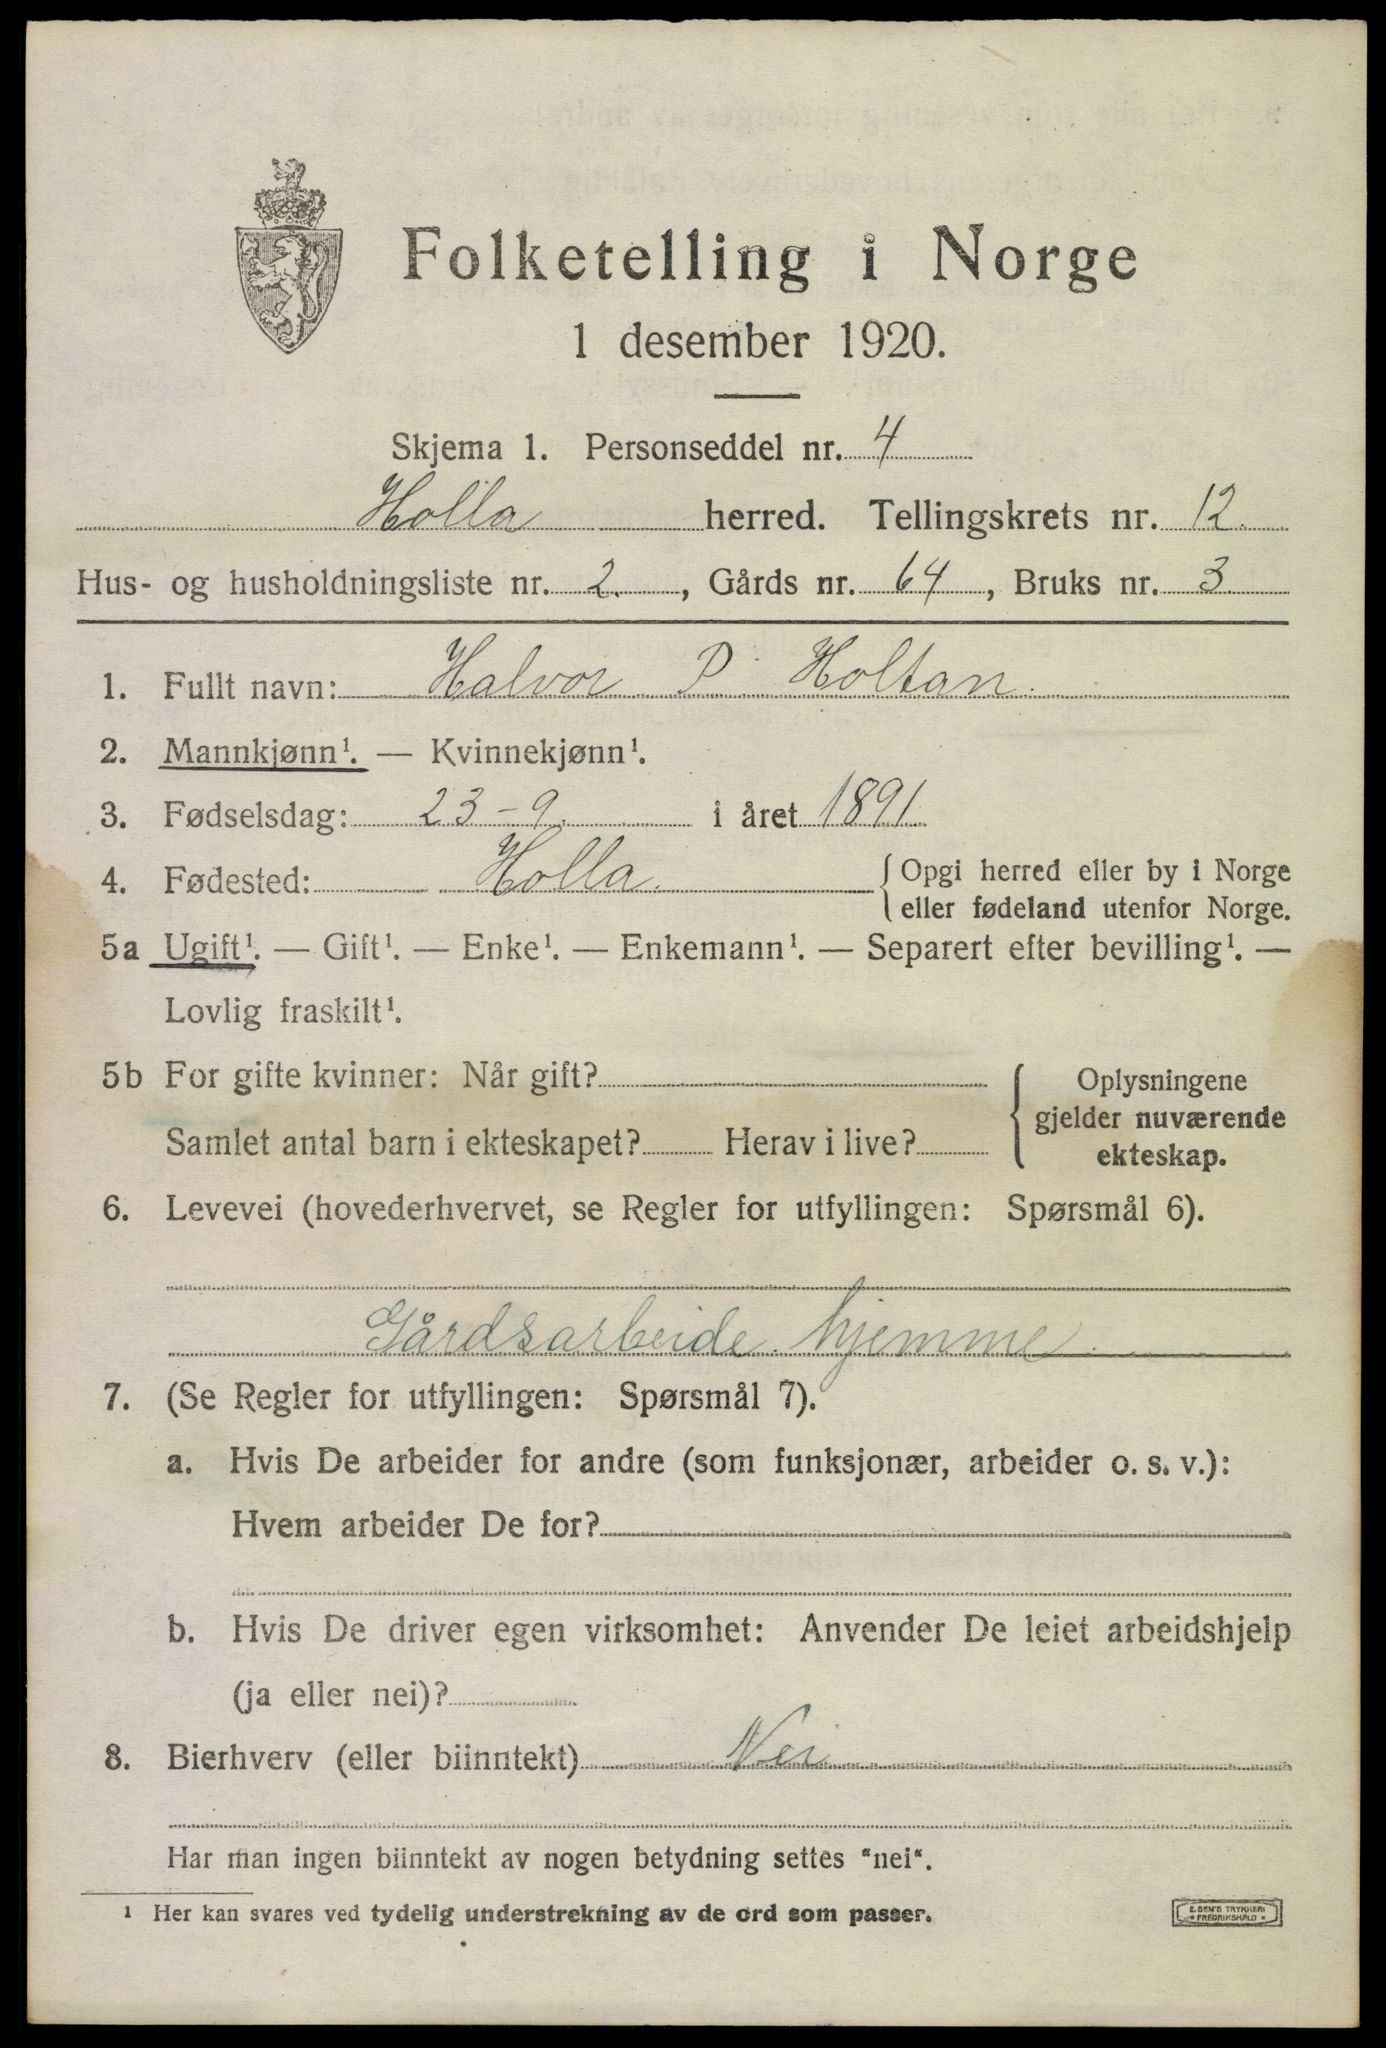 Folketelling i Norge
1 desember 1920.
Skjema 1. Personseddel nr. 4
Holla herred. Tellingskrets nr. 12.
Hus- og husholdningsliste nr. 2. , Gårds nr. 64 , Bruks nr. 3.
1. Fullt navn: Halvor P Holtan.
2. Mannkjønn¹. — Kvinnekjønn¹.
3. Fødselsdag: 23-9. i året 1891
4. Fødested: Holla. { Opgi herred eller by i Norge
eller fødeland utenfor Norge.
5a Ugift¹. — Gift¹. — Enke¹. — Enkemann¹. — Separert efter bevilling¹. —
Lovlig fraskilt¹.
5b For gifte kvinner: Når gift?
Samlet antal barn i ekteskapet? Herav i live?
{ Oplysningene
gjelder nuværende
ekteskap.
6. Levevei (hovederhvervet, se Regler for utfyllingen: Spørsmål 6).
Gårdsarbeide hjemme
7. (Se Regler for utfyllingen: Spørsmål 7).
a. Hvis De arbeider for andre (som funksjonær, arbeider o. s. v.):
Hvem arbeider De for?
b. Hvis De driver egen virksomhet: Anvender De leiet arbeidshjelp
(ja eller nei)?
8. Bierhverv (eller biinntekt) Nei
Har man ingen biinntekt av nogen betydning settes "nei".
¹ Her kan svares ved tydelig understrekning av de ord som passer.
E. SEM'S TRYKKERI
FREDRIKSHALD